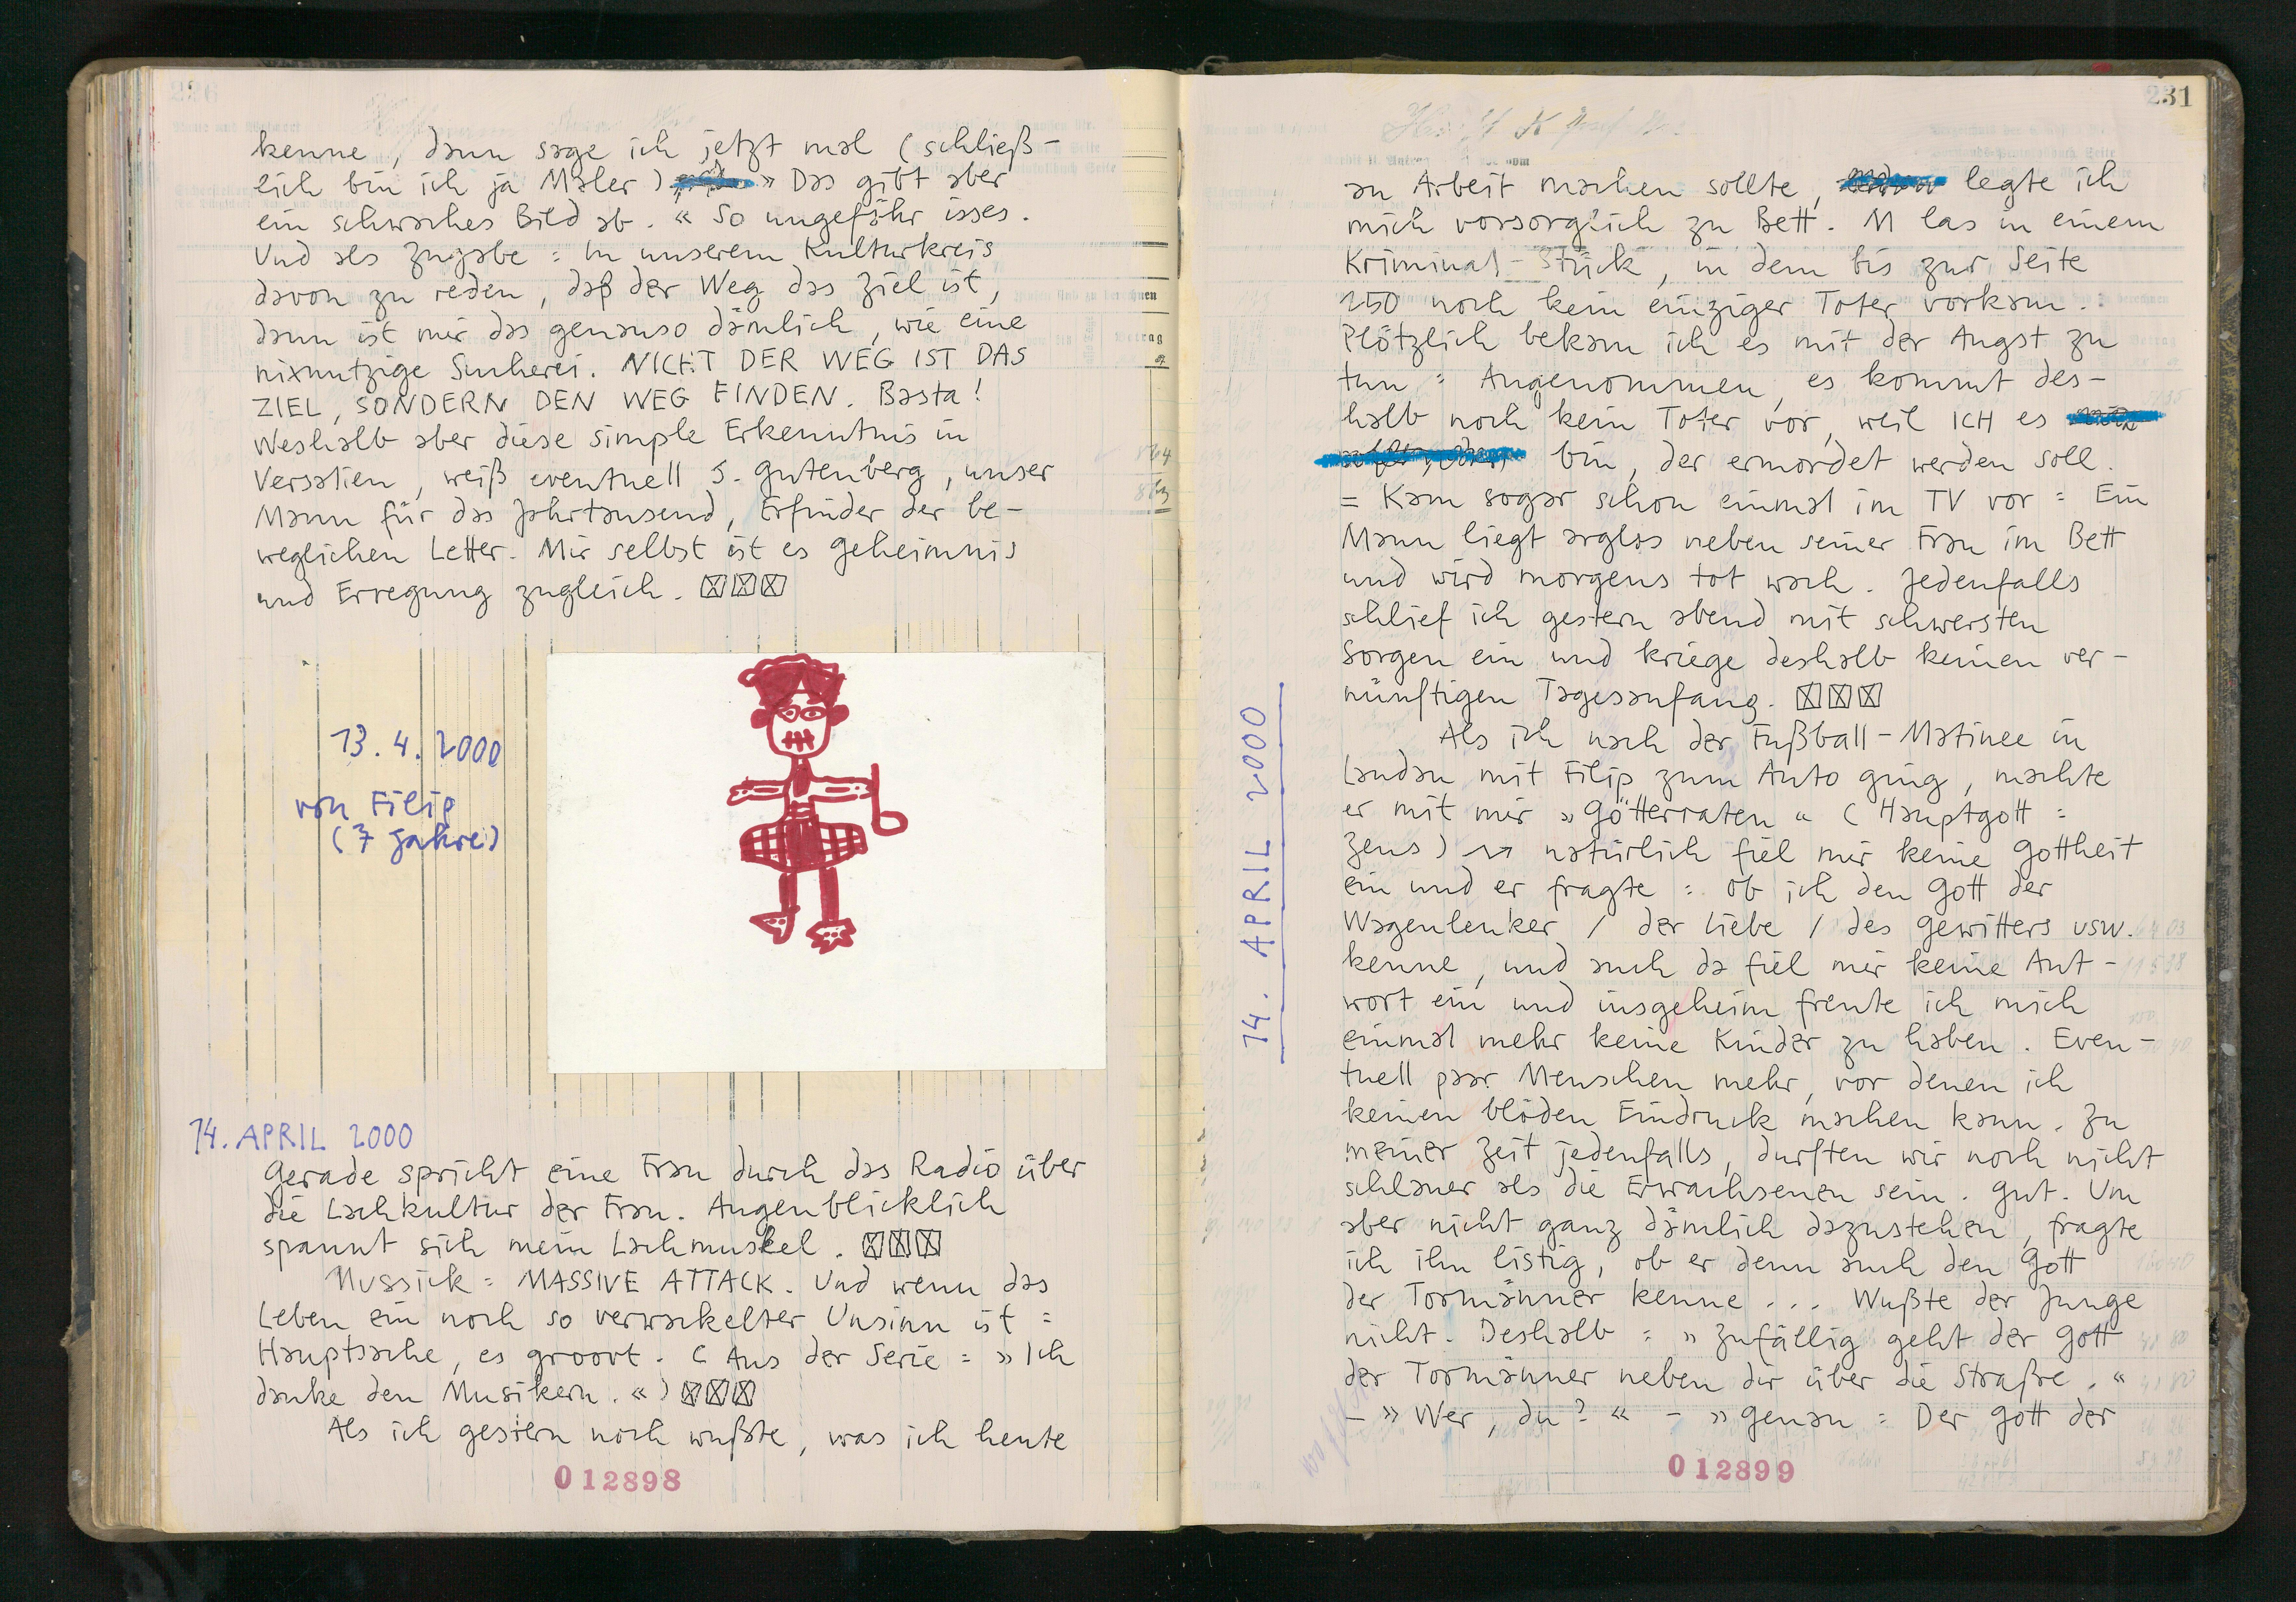 kenne, dann sage ich jetzt mal (schließ-
lich bin ich ja Maler) » Das gibt aber
ein schwaches Bild ab. « So ungefähr isses.
Und als Zugabe = In unserem Kulturkreis
davon zu reden, daß der Weg das Ziel ist,
dann ist mir das genauso dämlich, wie eine
nixnutzige Sucherei. NICHT DER WEG IST DAS
ZIEL, SONDERN DEN WEG FINDEN. Basta!
Weshalb aber diese simple Erkenntnis in
Versalien, weiß eventuell S. Gutenberg, unser
Mann für das Jahrtausend, Erfinder der be-
weglichen Letter. Mir selbst ist es Geheimnis
und Erregung zugleich.
13.4.2000
von Filip
(7 Jahre)
14. APRIL 2000
Gerade spricht eine Frau durch das Radio über
die Lachkultur der Frau. Augenblicklich
spannt sich mein Lachmuskel.
Mussick = MASSIVE ATTACK. Und wenn das
Leben ein noch so verwackelter Unsinn ist =
Hauptsache, es groovt. (Aus der Serie = » Ich
danke den Musikern. «)
Als ich gestern noch wußte, was ich heute
012898
231
14. APRIL 2000
an Arbeit machen sollte, legte ich
mich vorsorglich zu Bett. M las in einem
Kriminal-Stück, in dem bis zur Seite
150 noch kein einziger Toter vorkam.
Plötzlich bekam ich es mit der Angst zu
tun = Angenommen, es kommt des-
halb noch kein Toter vor, weil ICH es
bin, der ermordet werden soll.
= Kam sogar schon einmal im TV vor = Ein
Mann liegt arglos neben seiner Frau im Bett
und wird morgens tot wach. Jedenfalls
schlief ich gestern abend mit schwersten
Sorgen ein und kriege deshalb keinen ver-
nünftigen Tagesanfang.
Als ich nach der Fußball-Matinee in
Landau mit Filip zum Auto ging, machte
er mit mir » Götterraten « (Hauptgott =
Zeus) → natürlich fiel mir keine Gottheit
ein und er fragte = ob ich den Gott der
Wagenlenker / der Liebe / des Gewitters usw.
kenne, und auch da fiel mir keine Ant-
wort ein und insgeheim freute ich mich
einmal mehr keine Kinder zu haben. Even-
tuell paar Menschen mehr, vor denen ich
keinen blöden Eindruck machen kann. Zu
meiner Zeit jedenfalls, durften wir noch nicht
schlauer als die Erwachsenen sein. Gut. Um
aber nicht ganz dämlich dazustehen, fragte
ich ihn listig, ob er denn auch den Gott
der Tormänner kenne ... Wußte der Junge
nicht. Deshalb = » Zufällig geht der Gott
der Tormänner neben dir über die Straße. «
– » Wer, du? « – » Genau = Der Gott der
012899